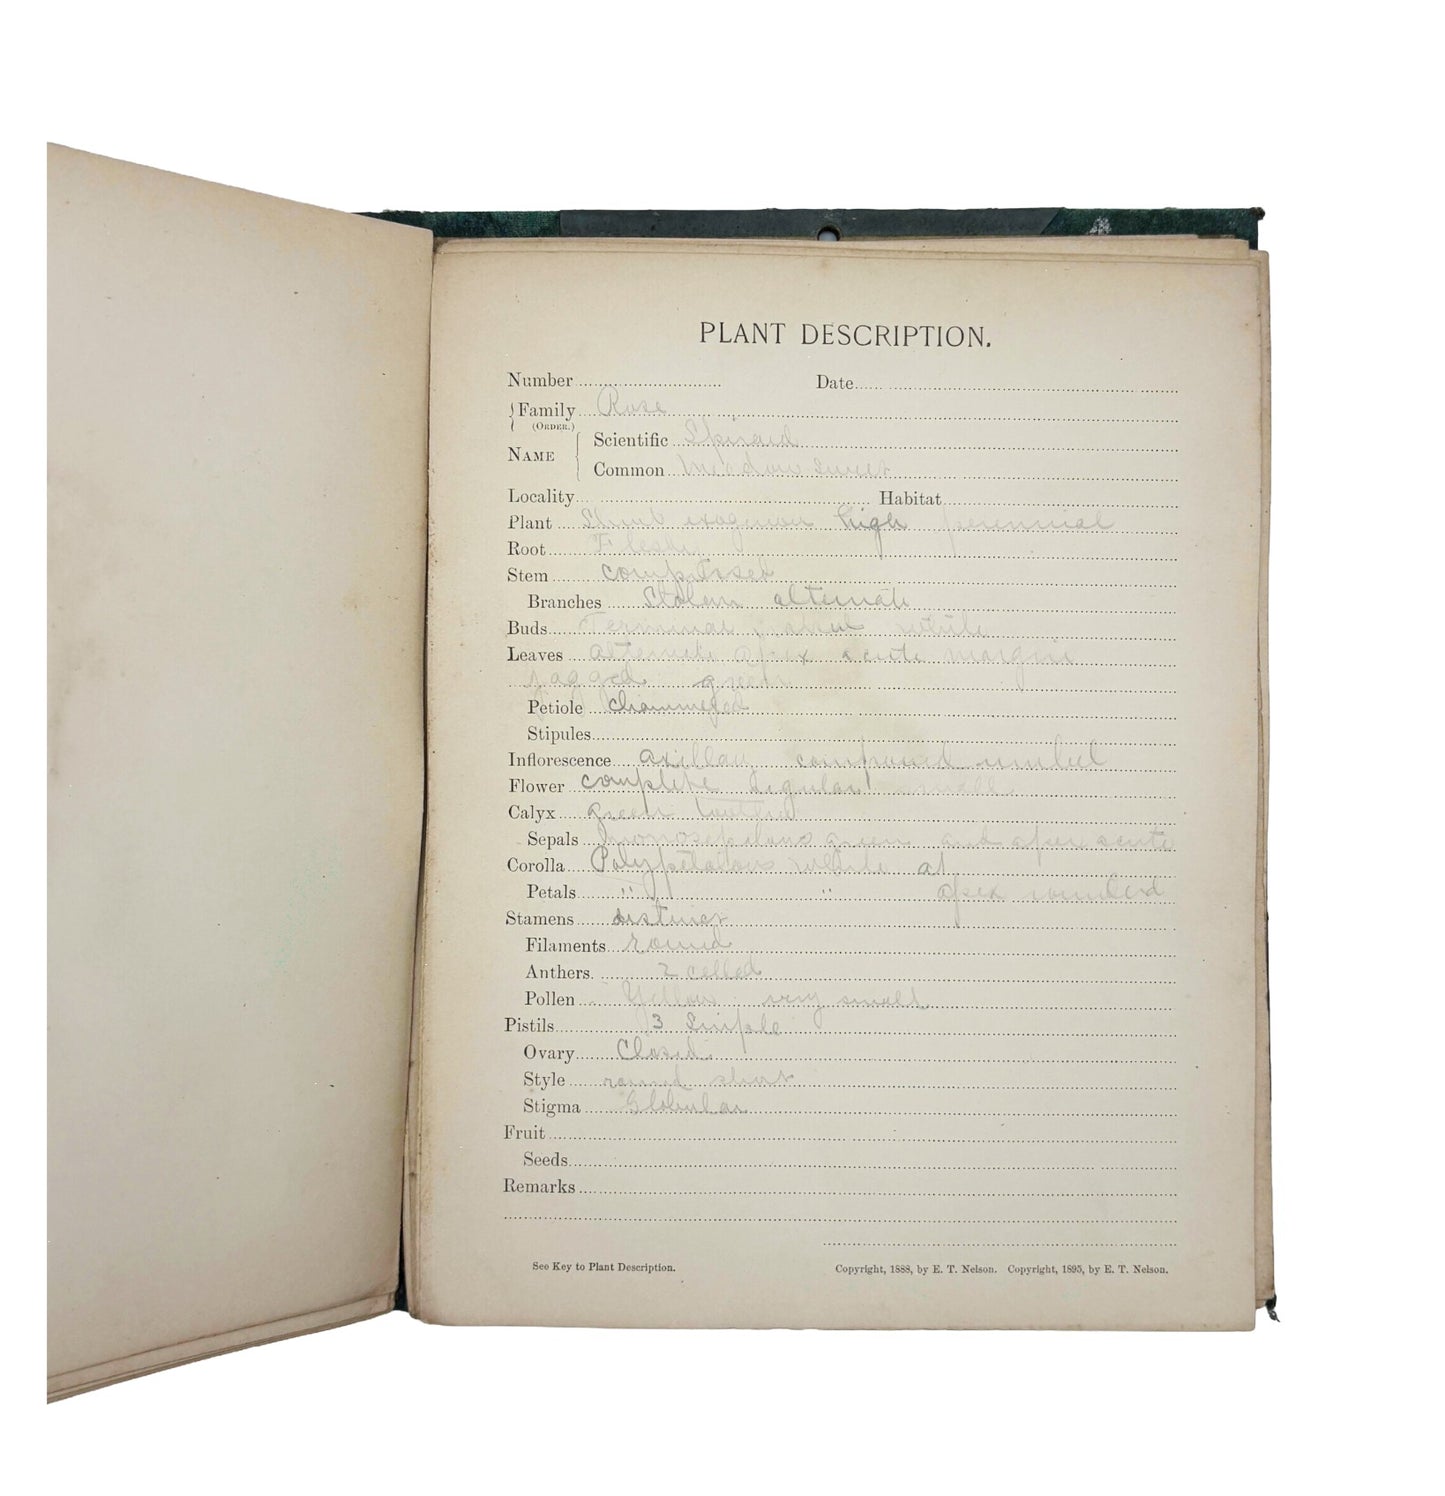 PLANT DESCRIPTION.
Number Date
Family Rose
(ORDER.)
Scientific
NAME
Common Meadow sweet
Locality Habitat
Plant Shrub exogenous high perennial
Root
Stem compressed
Branches alternate
Buds Terminal white
Leaves alternate apex acute margin
jagged green
Petiole
Stipules
Inflorescence compound umbel
Flower complete regular small
Calyx green toothed
Sepals green and apex acute
Corolla Polypetalous white at
Petals " " apex rounded
Stamens distinct
Filaments round
Anthers. 2 celled
Pollen Yellow very small
Pistils 3 Simple
Ovary Closed
Style round short
Stigma Globular
Fruit
Seeds
Remarks
See Key to Plant Description. Copyright, 1888, by E. T. Nelson. Copyright, 1895, by E. T. Nelson.